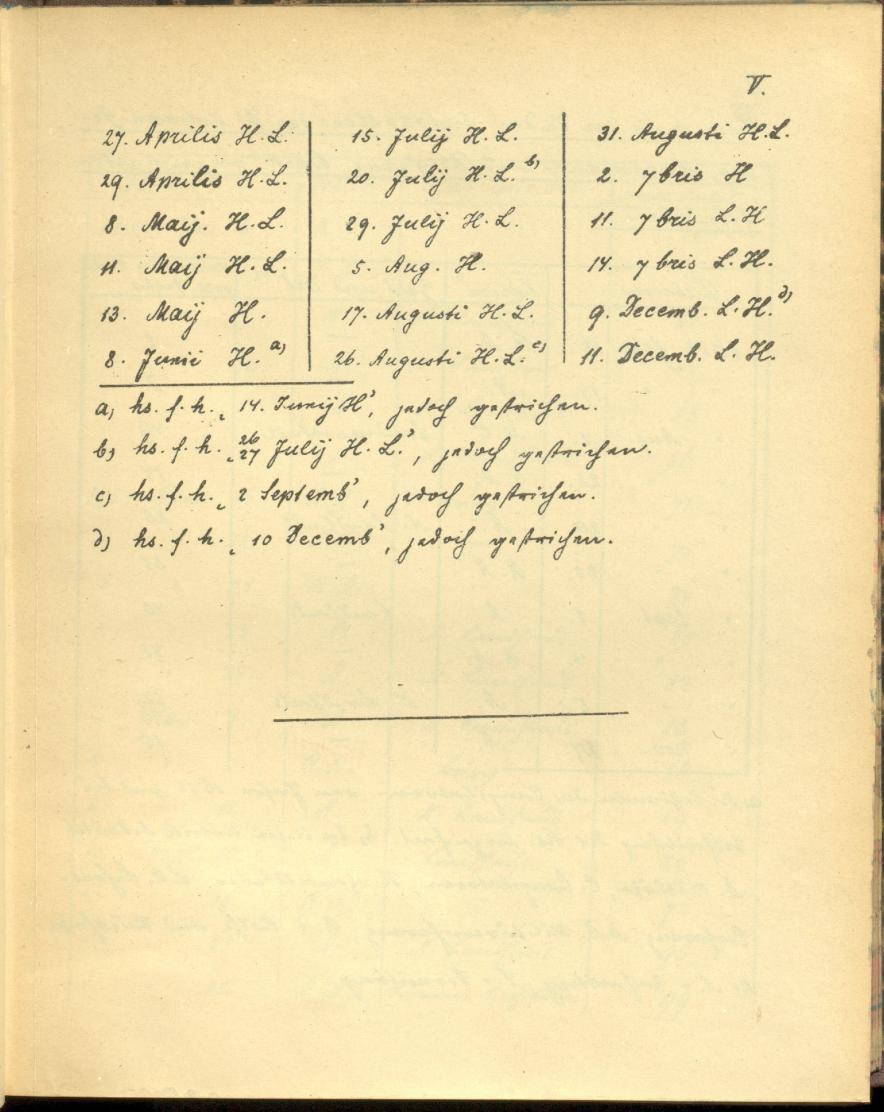 V.
27. Aprilis H. L. 15. Julij H. L. 31. Augusti H. L.
29. Aprilis H. L. 20. Julij H. L. b) 2. 7bris H
8. Maij. H. L. 29. Julij H. L. 11. 7bris L. H
11. Maij H. L. 5. Aug. H. 14. 7bris L. H.
13. Maij H. 17. Augusti H. L. 9. Decemb. L. H. d)
8. Junii H. a) 26. Augusti H. L. c) 11. Decemb. L. H.
a) hs. f. h. „14. Junij H“, jedoch gestrichen.
b) hs. f. h. „26 27 Julij H. L.“, jedoch gestrichen.
c) hs. f. h. „2 Septemb“, jedoch gestrichen.
d) hs. f. h. „10 Decemb“, jedoch gestrichen.